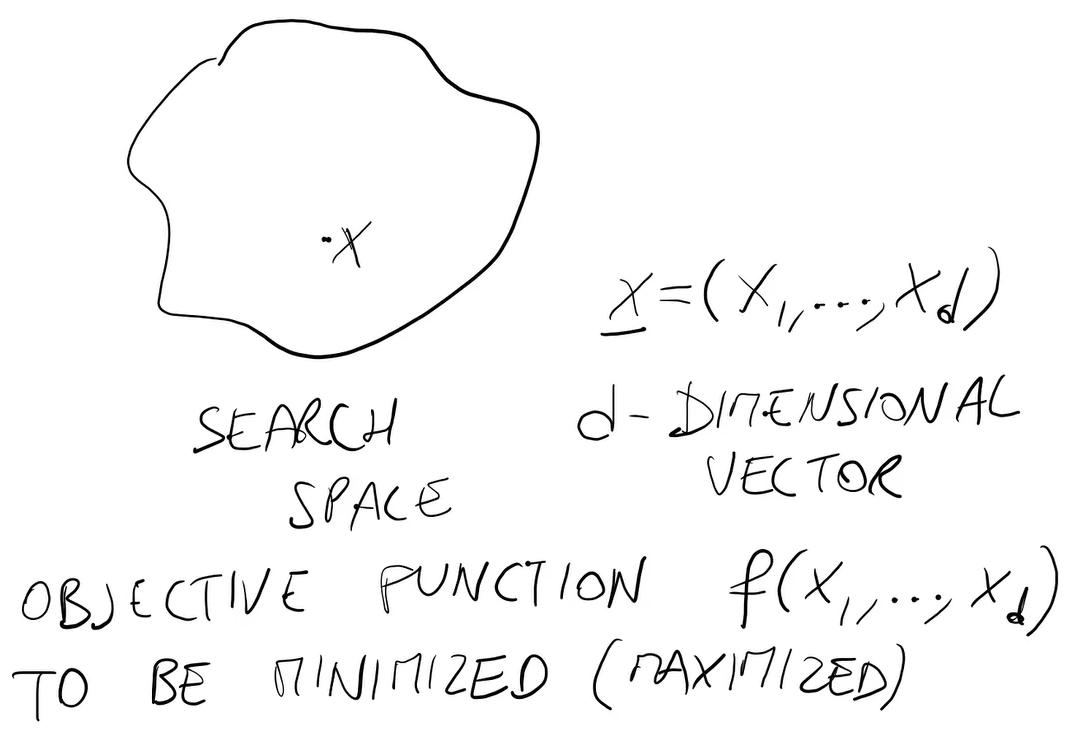 X
x=(X1,...,Xd)
SEARCH
SPACE
d-DIMENSIONAL
VECTOR
OBJECTIVE FUNCTION f(X1,...,Xd)
TO BE MINIMIZED (MAXIMIZED)